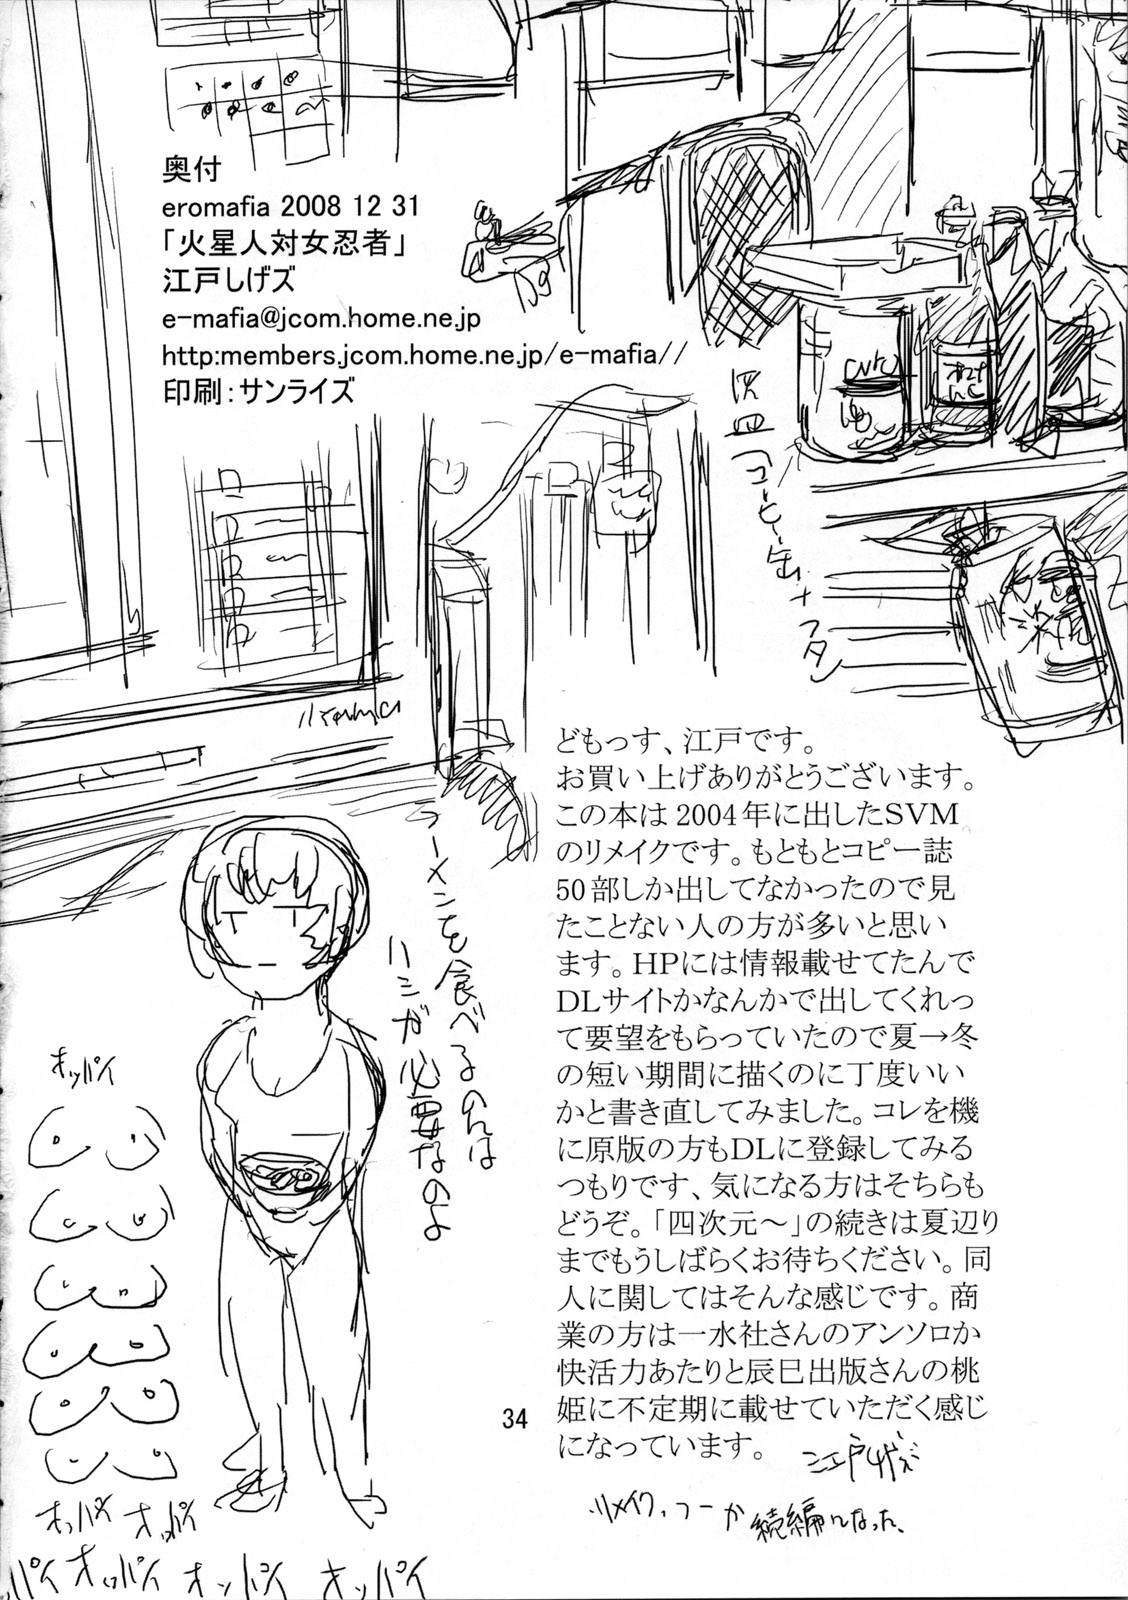 奥付
eromafia 2008 12 31
「火星人対女忍者」
江戸しげズ
e-mafia@jcom.home.ne.jp
http:members.jcom.home.ne.jp/e-mafia//
印刷：サンライズ
灰皿
コーヒー缶+フタ
ラーメンを食べるのには
ハシが必要なのよ
どもっす、江戸です。
お買い上げありがとうございます。
この本は2004年に出したSVM
のリメイクです。もともとコピー誌
50部しか出してなかったので見
たことない人の方が多いと思い
ます。HPには情報載せてたんで
DLサイトかなんかで出してくれっ
て要望をもらっていたので夏→冬
の短い期間に描くのに丁度いい
かと書き直してみました。コレを機
に原版の方もDLに登録してみる
つもりです、気になる方はそちらも
どうぞ。「四次元～」の続きは夏辺り
までもうしばらくお待ちください。同
人に関してはそんな感じです。商
業の方は一水社さんのアンソロか
快活力あたりと辰巳出版さんの桃
姫に不定期に載せていただく感じ
になっています。
江戸しげズ
リメイク、つーか続編になった、
オッパイ
オッパイ オッパイ
ッパイ オッパイ オッパイ オッパイ
34